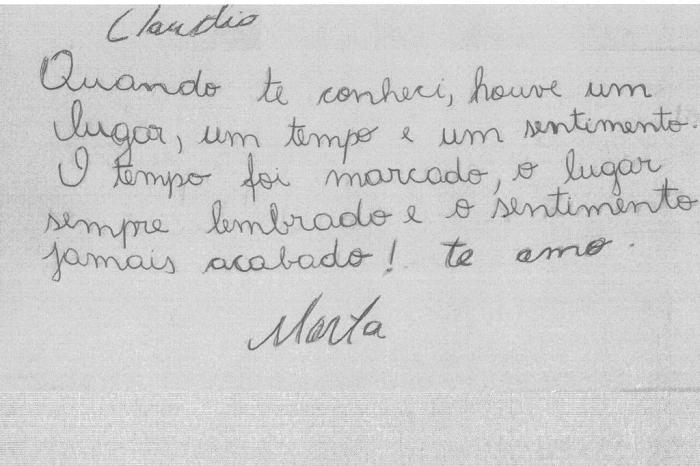 Claudio
Quando te conheci, houve um
lugar, um tempo e um sentimento.
O tempo foi marcado, o lugar
sempre lembrado e o sentimento
jamais acabado! te amo.
Marta